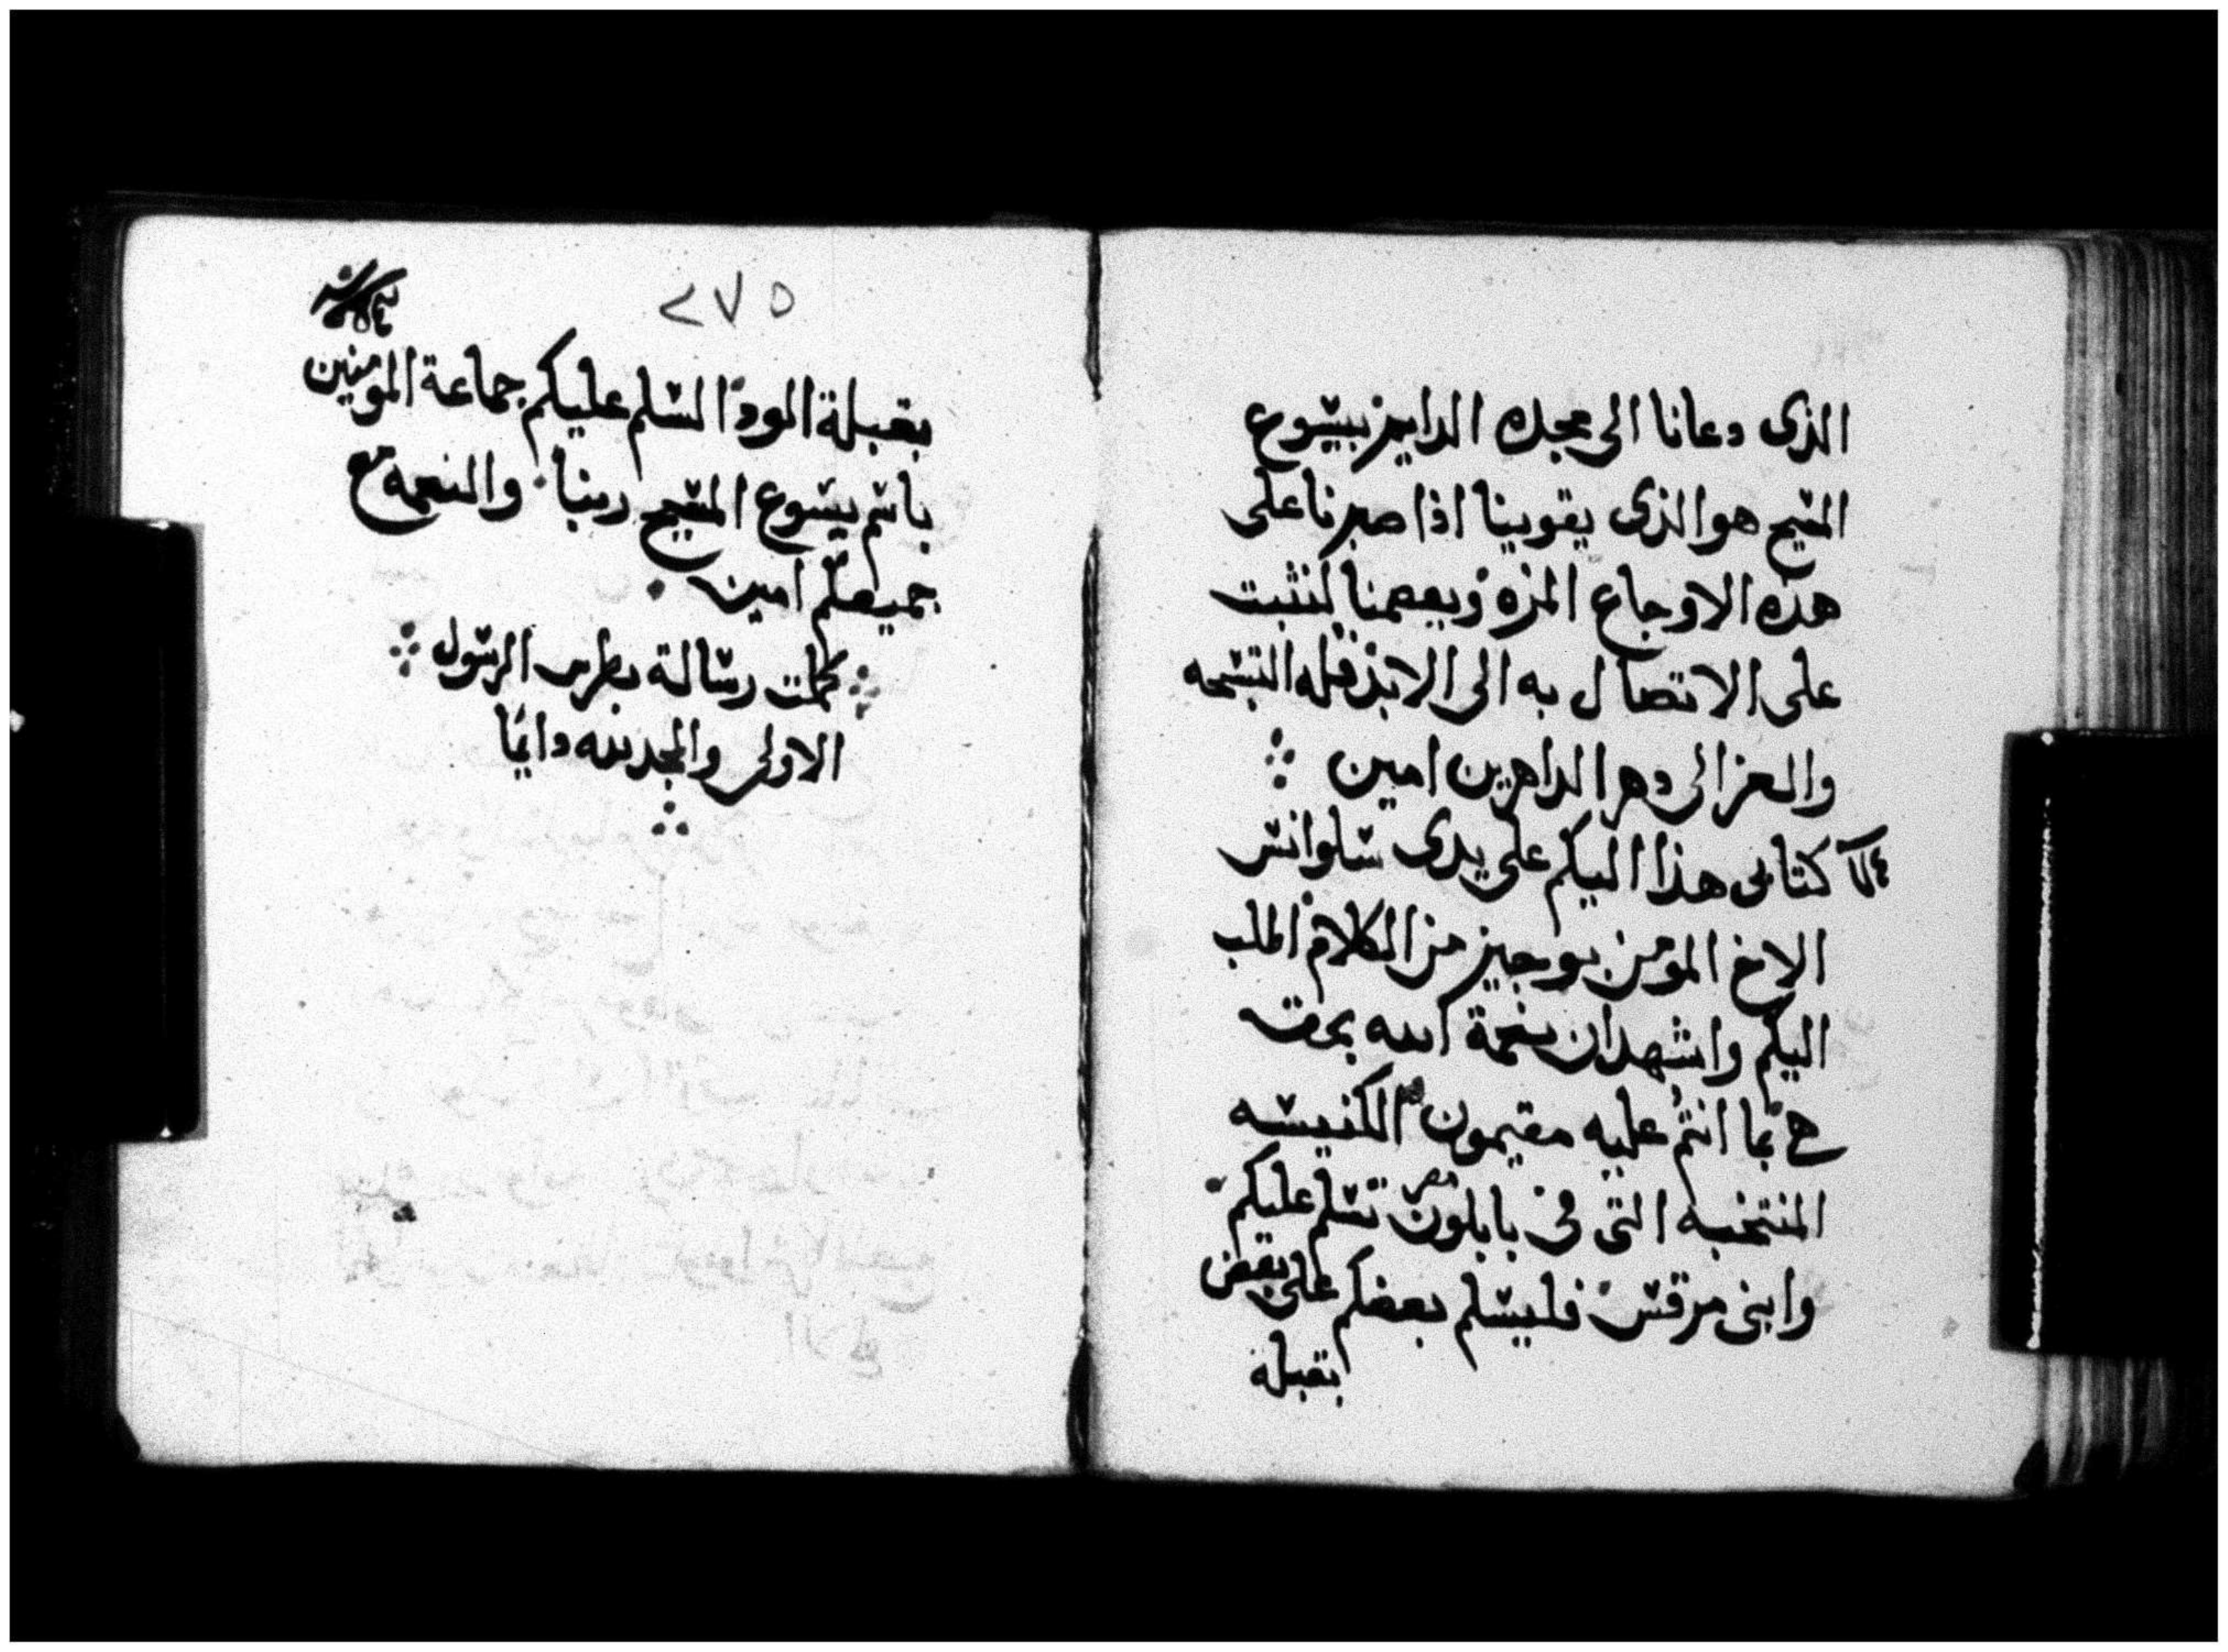 الذى دعانا الى مجده الدايم بيسوع
المسيح هو الذى يقوينا اذا صبرنا على
هذه الاوجاع المره ويعصمنا لنثبت
على الاتصال به الى الابد فله التسبحه
والعز الى دهر الداهرين امين
كتابى هذا اليكم على يدى سلوانس
الاخ المؤمن بوجيز من الكلام
اليكم واشهد ان نعمة الله بحق
انتم عليه مقيمون الكنيسه
المنتخبه التى فى بابلون مصر تسلم عليكم
وابنى مرقس فليسلم بعضكم على بعض
بقبلة
٢٧٥
بقبلة الود السلم عليكم جماعة المومنين
باسم يسوع المسيح ربنا والنعمه مع
جميعكم امين
كملت رسالة بطرس الرسول
الاولى والمجد لله دايما